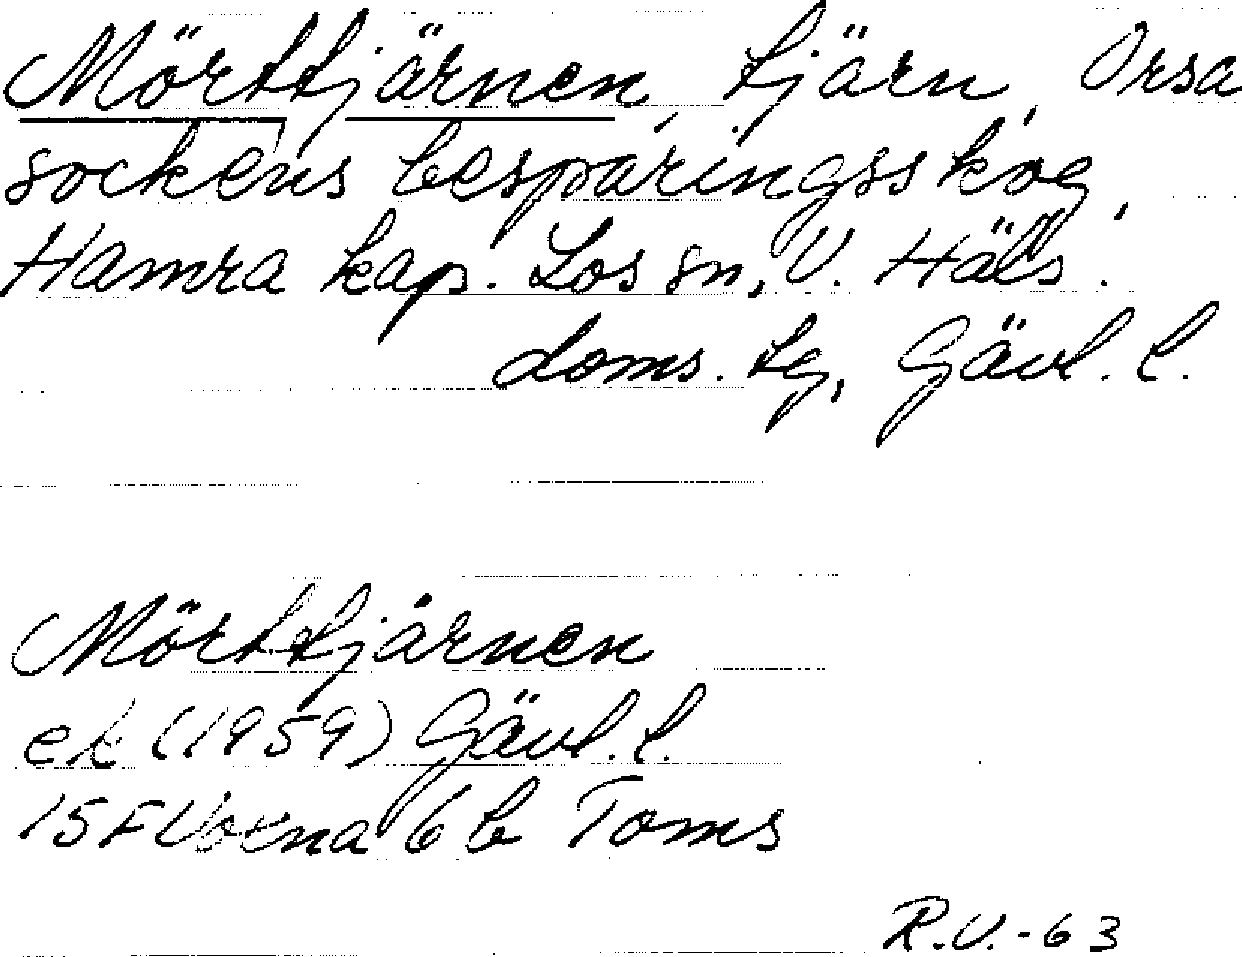 Mörttjärnen, tjärn, Orsa
sockens besparingsskog,
Hamra kap. Los sn, V. Häls.
doms. tg, Gävl. l.
Mörttjärnen
ek (1959) Gävl. l.
15F Voxna 6 b Toms
R.V.-63